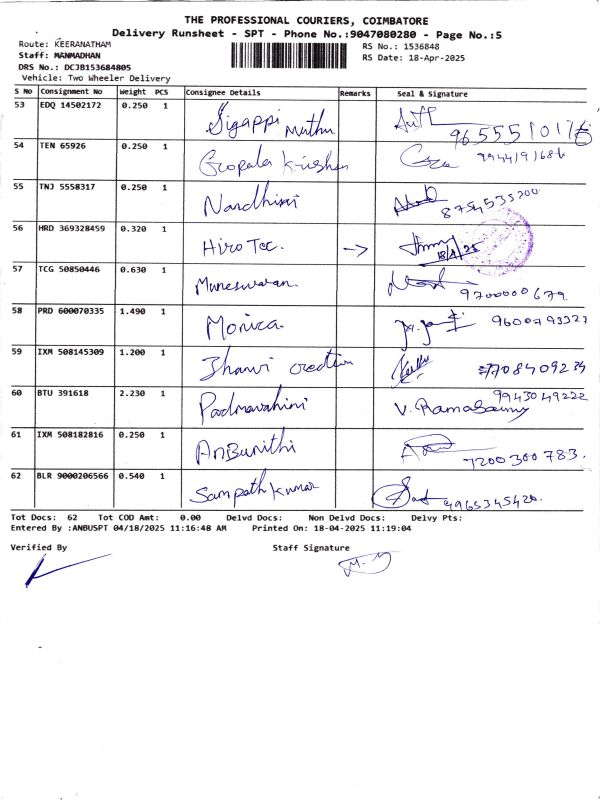 THE PROFESSIONAL COURIERS, COIMBATORE
Delivery Runsheet - SPT - Phone No.:9047080280 - Page No.:5
Route: KEERANATHAM RS No.: 1536848
Staff: MANMADHAN RS Date: 18-Apr-2025
DRS No.: DCJB153684805
Vehicle: Two Wheeler Delivery
S No Consignment No Weight PCS Consignee Details Remarks Seal & Signature
53 EDQ 14502172 0.250 1 Sigappi Muthu 9655510176
54 TEN 65926 0.250 1 Gopala Krishnan 9944191686
55 TNJ 5558317 0.250 1 Nandhini 8754535200
56 HRD 369328459 0.320 1 Hiro Tec. → 18/4/25
57 TCG 50850446 0.630 1 Muneswaran 9700000679
58 PRD 600070335 1.490 1 Monica 9600793327
59 IXM 508145309 1.200 1 Creation 7708409234
60 BTU 391618 2.230 1 Padmavahini V. Ramasamy 9943049222
61 IXM 508182816 0.250 1 Anbunithi 7200300783.
62 BLR 9000206566 0.540 1 Sampath Kumar 9965345420.
Tot Docs: 62 Tot COD Amt: 0.00 Delvd Docs: Non Delvd Docs: Delvy Pts:
Entered By :ANBUSPT 04/18/2025 11:16:48 AM Printed On: 18-04-2025 11:19:04
Verified By Staff Signature